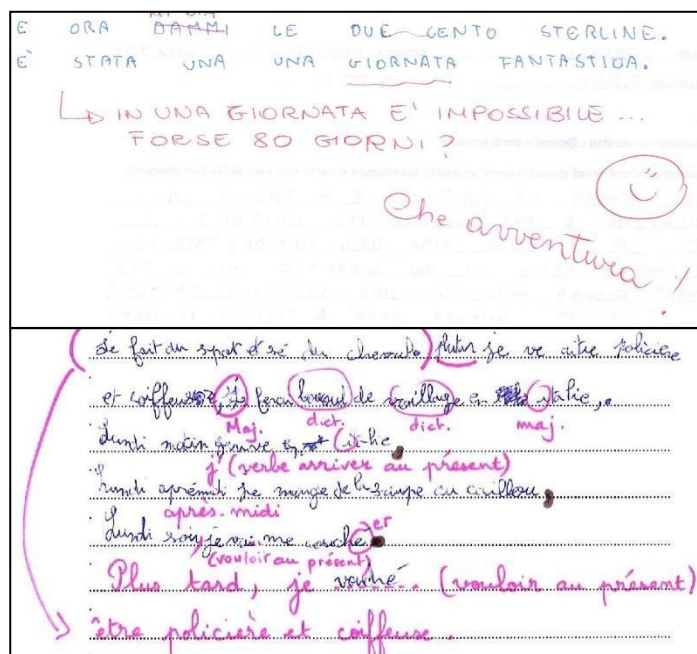 MI DIA
E ORA DAMMI LE DUE CENTO STERLINE.
E' STATA UNA UNA GIORNATA FANTASTICA.
↳ IN UNA GIORNATA E' IMPOSSIBILE...
FORSE 80 GIORNI?
Che avventura!
(Je fait du sport et du ) je ve être policière
et coiffeuse, je de en italie,
Maj. dict. dict. maj.
Lundi matin italie
j' (verbe arriver au présent)
Lundi je mange de la soupe au caillou
après-midi
Lundi soir je vai me couché er
(vouloir au présent)
Plus tard, je (vouloir au présent)
être policière et coiffeuse.